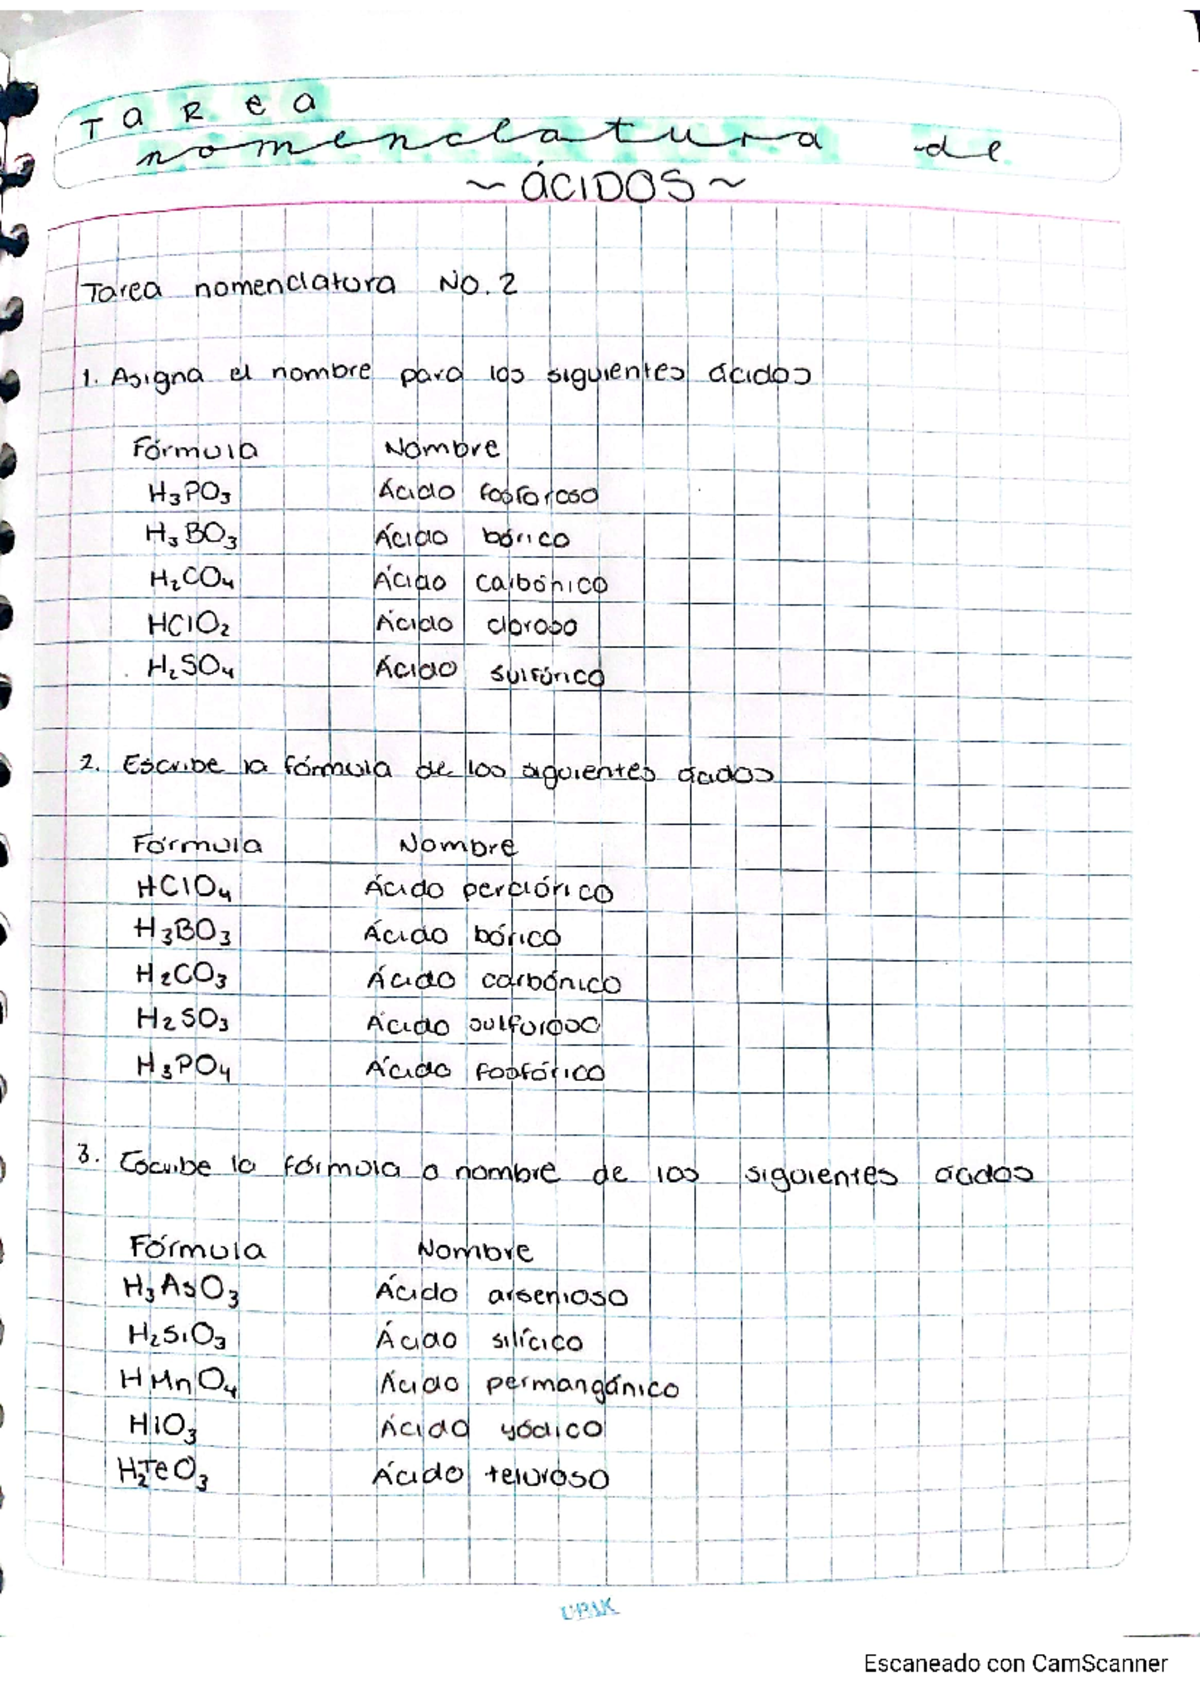 Tarea
nomenclatura de
~ÁCIDOS~
Tarea nomenclatura No. 2
1. Asigna el nombre para los siguientes ácidos
Fórmula Nombre
H₃PO₃ Ácido fosforoso
H₃BO₃ Ácido bórico
H₂CO₄ Ácido carbónico
HClO₂ Ácido cloroso
H₂SO₄ Ácido sulfúrico
2. Escribe la fórmula de los siguientes ácidos
Fórmula Nombre
HClO₄ Ácido perclórico
H₃BO₃ Ácido bórico
H₂CO₃ Ácido carbónico
H₂SO₃ Ácido sulfuroso
H₃PO₄ Ácido fosfórico
3. Escribe la fórmula o nombre de los siguientes ácidos
Fórmula Nombre
H₃AsO₃ Ácido arsenioso
H₂SiO₃ Ácido silícico
HMnO₄ Ácido permangánico
HiO₃ Ácido yódico
H₂TeO₃ Ácido teluroso
Escaneado con CamScanner